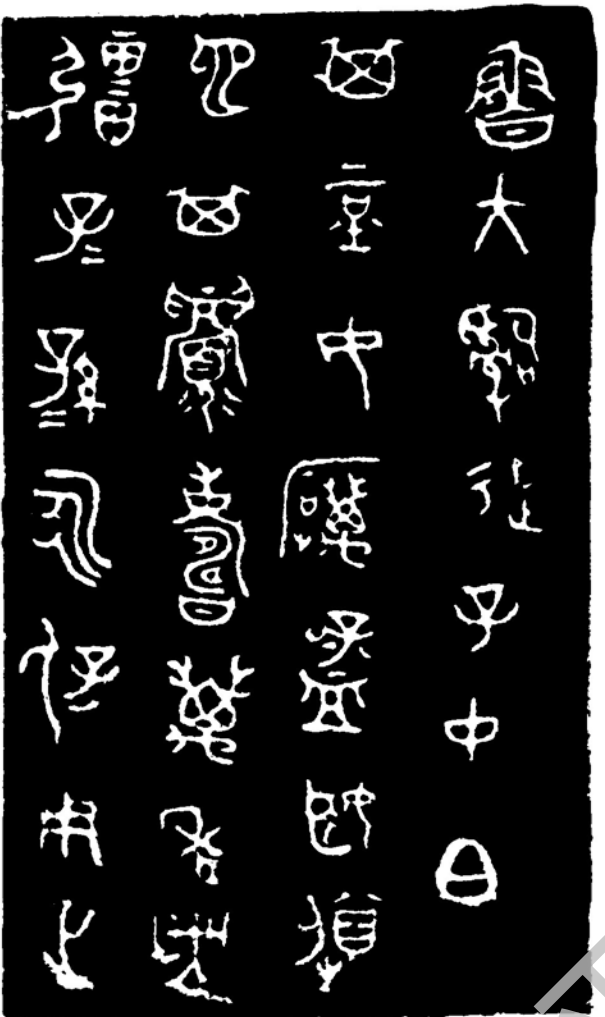 魯大𤔲徒子中白
其庶女厲孟姬媵
它其眉壽萬年無
彊子=孫=永保用之